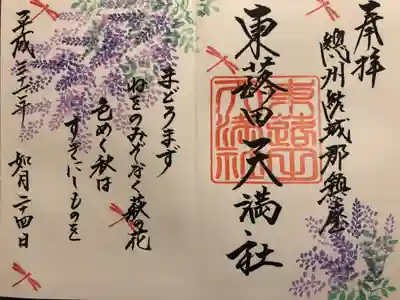 奉拝
總州結城郡鎮座
東蕗田天満社
まどろまず
ねをのみぞなく萩の花
色めく秋は
すぎにしものを
平成三十一年 如月二十四日